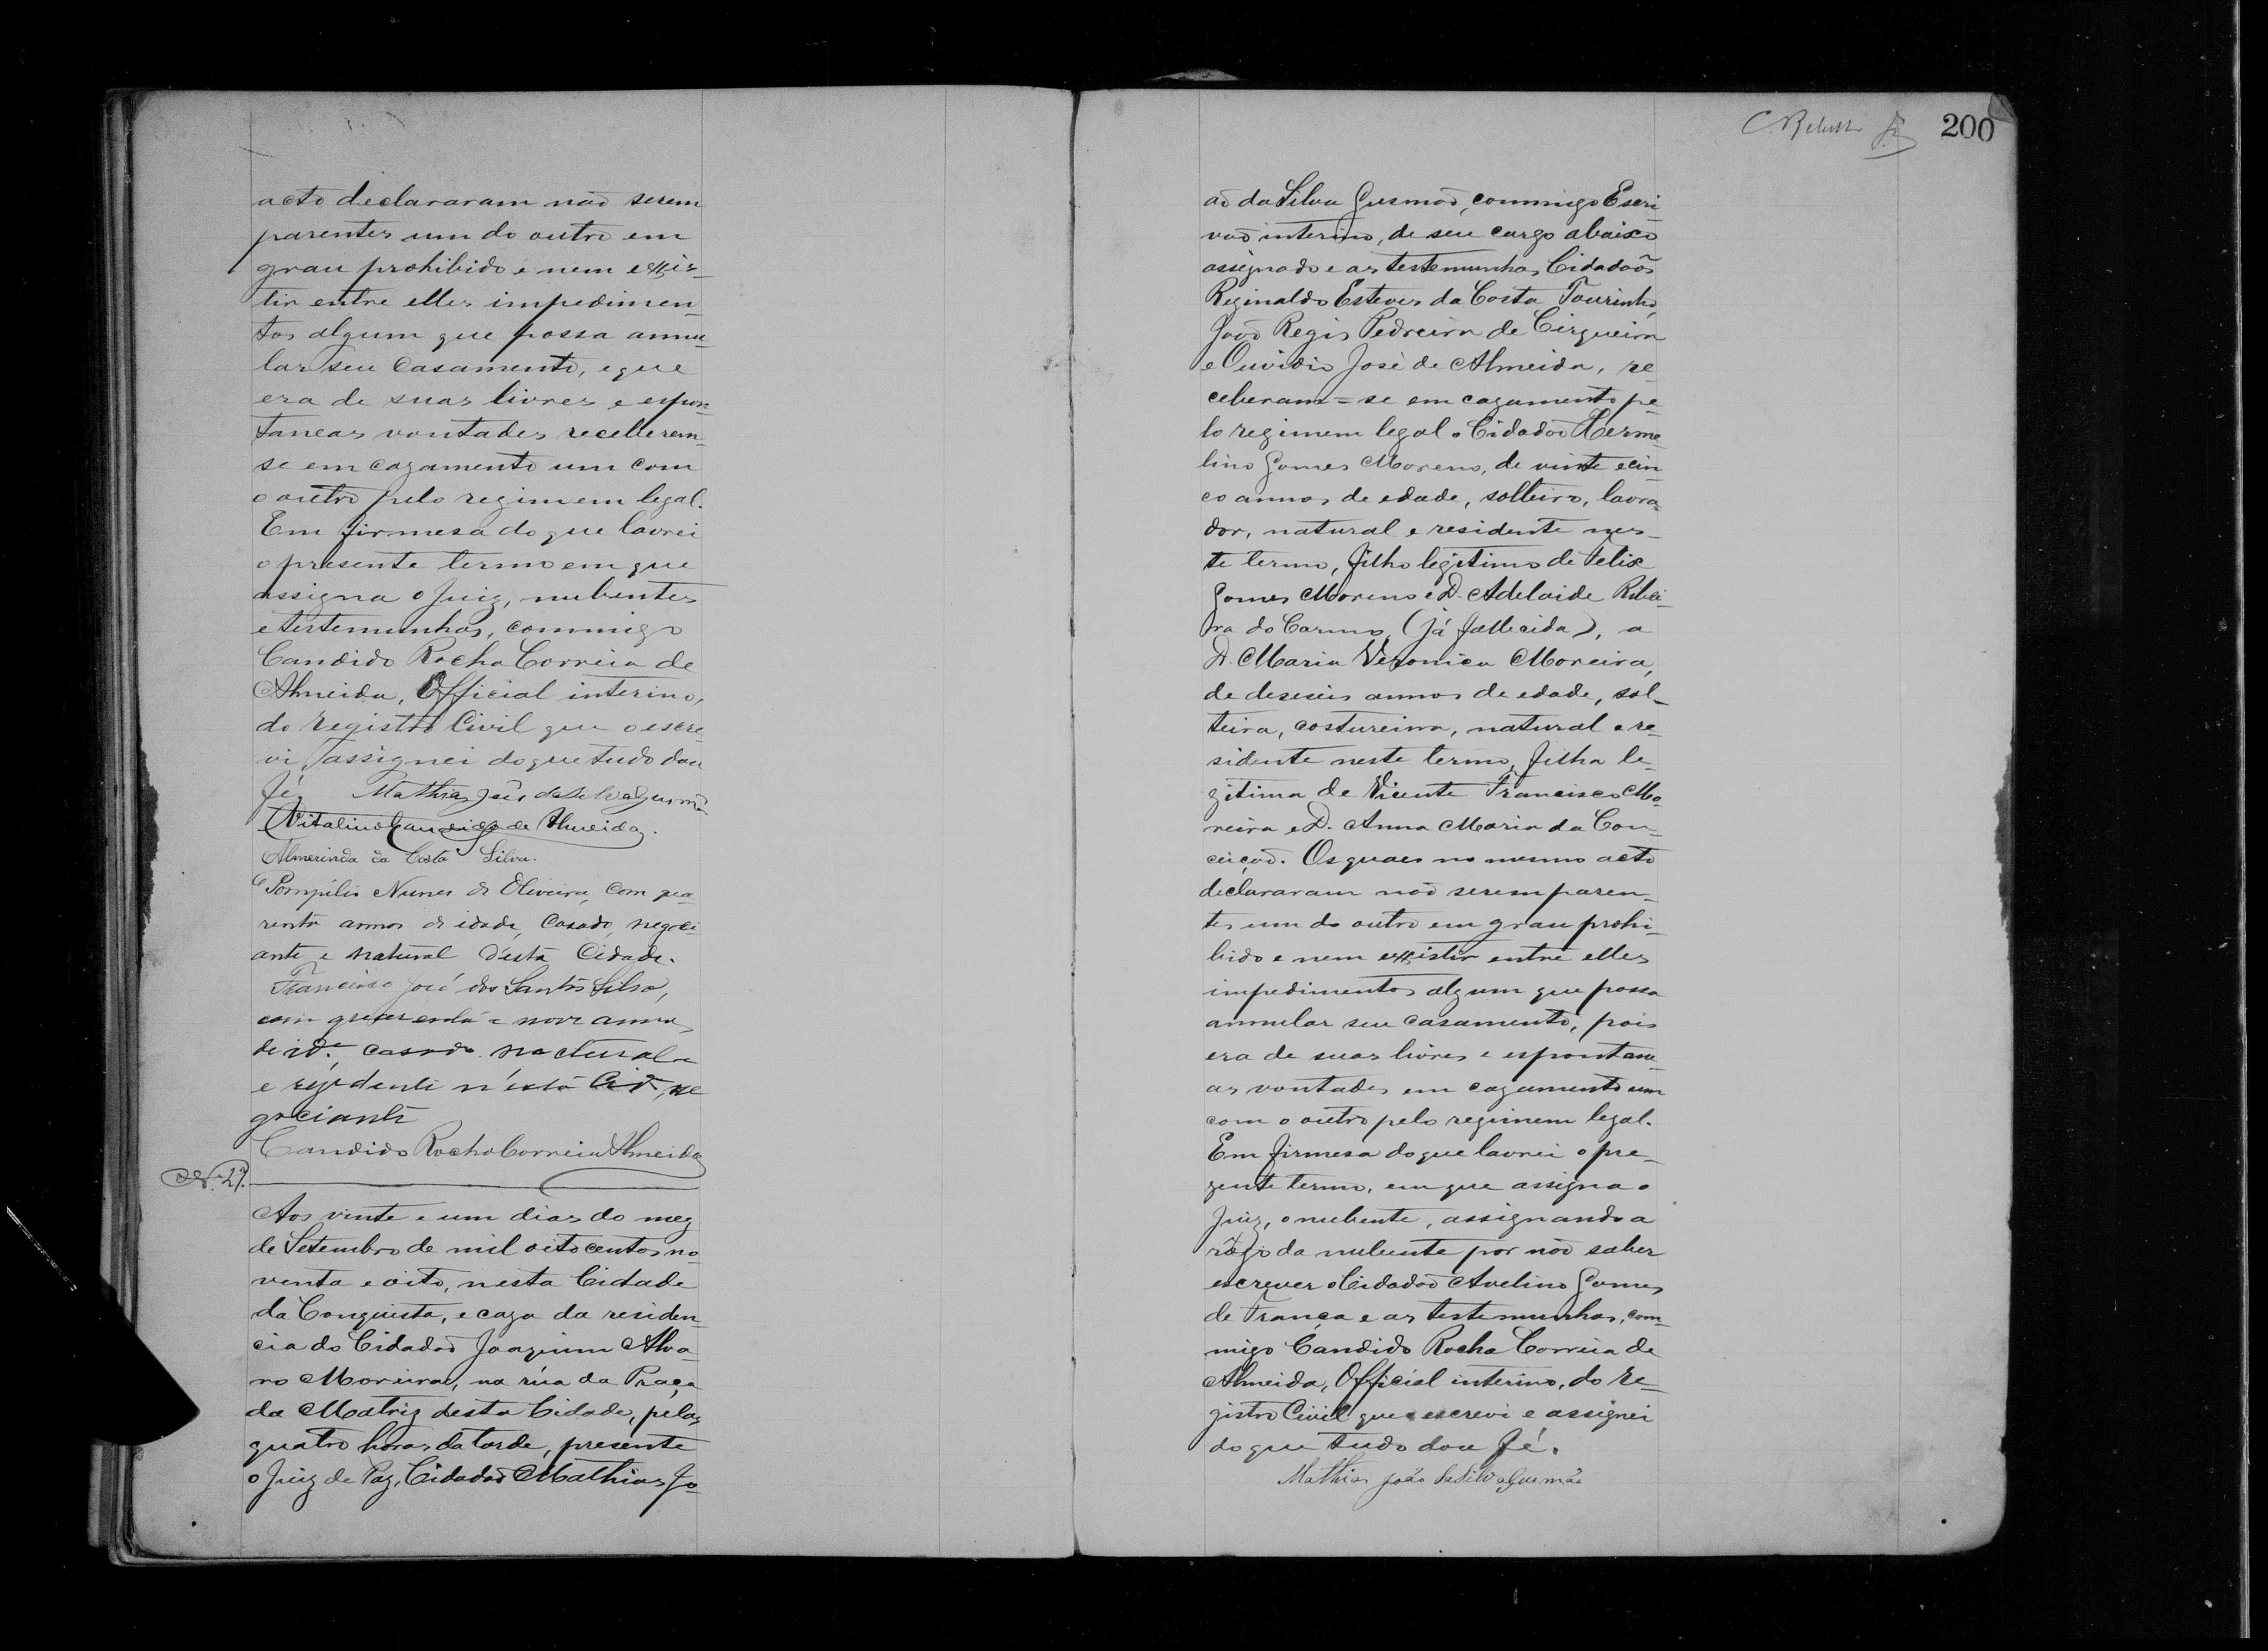 acto declararam não serem
parentes um do outro em
grau prohibido e nem exis-
tir entre elles impedimen-
tos algum que possa annu-
lar seu Casamento, e que
era de suas livres e espon-
taneas vontades receberem-
se em cazamento um com
o outro pelo regimem legal.
Em firmesa do que lavrei
o presente termo em que
assigna o Juiz, nubentes
e testemunhas, commigo
Candido Rocha Correia de
Almeida, Official interino,
do Registro Civil que o escre-
vi, assignei do que tudo dou
fé. Mathias João da Silva Gusmão
Vitalino Candido de Almeida.
Almerinda da Costa Silva.
Pompilio Nunes de Oliveira, com qua-
renta annos de idade, Casado, negoci-
ante e natural desta Cidade.
Francisco José dos Santos Silva,
com quarenta e nove annos
de id.e, casado natural
e rezidente n'esta Cid.e, ne
gociante
Candido Rocha Correia Almeida
N. 27.
Aos vinte e um dias do mez
de Setembro de mil oitocentos no-
venta e oito, nesta Cidade
da Conquista, e caza da residen-
cia do Cidadão Joaquim Alva-
ro Moreira, na rúa da Praça
da Matriz desta Cidade, pelas
quatro horas da tarde, presente
o Juiz de Paz, Cidadão Mathias Jo-
200
ão da Silva Gusmão, commigo Escri-
vão interino, de seu cargo abaixo
assignado e as testemunhas Cidadãos
Reginaldo Esteves da Costa Tourinho,
João Regis Pedreira de Cirqueira
e Ouvidio José de Almeida, re-
ceberam-se em cazamento pe-
lo regimem legal o Cidadão Herme-
lino Gomes Moreno, de vinte e cin-
co annos de edade, solteiro, lavra-
dor, natural e residente nes-
te termo, filho legitimo de Felix
Gomes Moreno e D. Adelaide Ribei-
ra do Carmo, (já fallecida), a
D. Maria Veronica Moreira,
de deseseis annos de edade, sol-
teira, costureira, natural e re-
sidente neste termo, filha le-
gitima de Vicente Francisco Mo-
reira e D. Anna Maria da Con-
ceição. Os quaes no mesmo acto
declararam não serem paren-
tes um do outro em grau prohi-
bido e nem existir entre elles
impedimentos algum que possa
annular seu casamento, pois
era de suas livres e espontane-
as vontades em cazamento um
com o outro pelo regimem legal.
Em firmesa do que lavrei o pre-
zente termo, em que assigna o
Juiz, o nubente, assignando a
rôgo da nubente por não saber
escrever o Cidadão Avelino Gomes
de França e as testemunhas, com-
migo Candido Rocha Correia de
Almeida, Official interino, do Re-
gistro Civil que escrevi e assignei
do que tudo dou fé.
Mathias João da Silva Gusmão